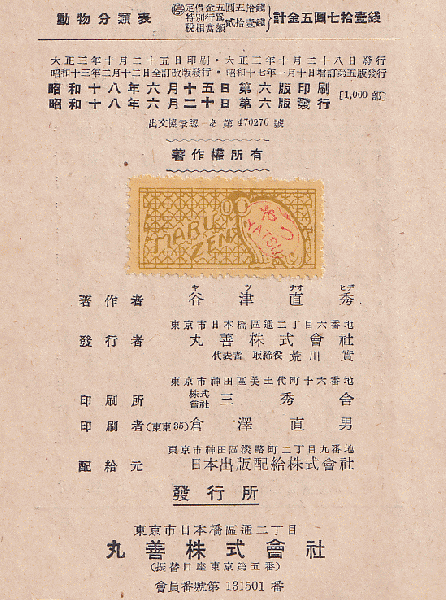 動物分類表
定價金五圓五拾錢
特別行爲税相當額 貳拾壹錢
計金五圓七拾壹錢
大正三年十月二十五日印刷・大正三年十月二十八日發行
昭和十三年二月十二日全訂改版發行・昭和十七年二月十日增訂第五版發行
昭和十八年六月十五日第六版印刷
昭和十八年六月二十日第六版發行
[1,000 部]
出文協承認 い 第 470276 號
著作權所有
MARUZEN
YATSU
著作者 谷津直秀
ヤ ツ ナオ ヒデ
東京市日本橋區通二丁目六番地
發行者 丸善株式會社
代表者 取締役 荒川實
東京市神田區美土代町十六番地
印刷所 株式會社 三秀舍
印刷者 (東東35) 倉澤直男
東京市神田區淡路町二丁目九番地
配給元 日本出版配給株式會社
發行所
東京市日本橋區通二丁目
丸善株式會社
(振替口座東京第五番)
會員番號第 131501 番